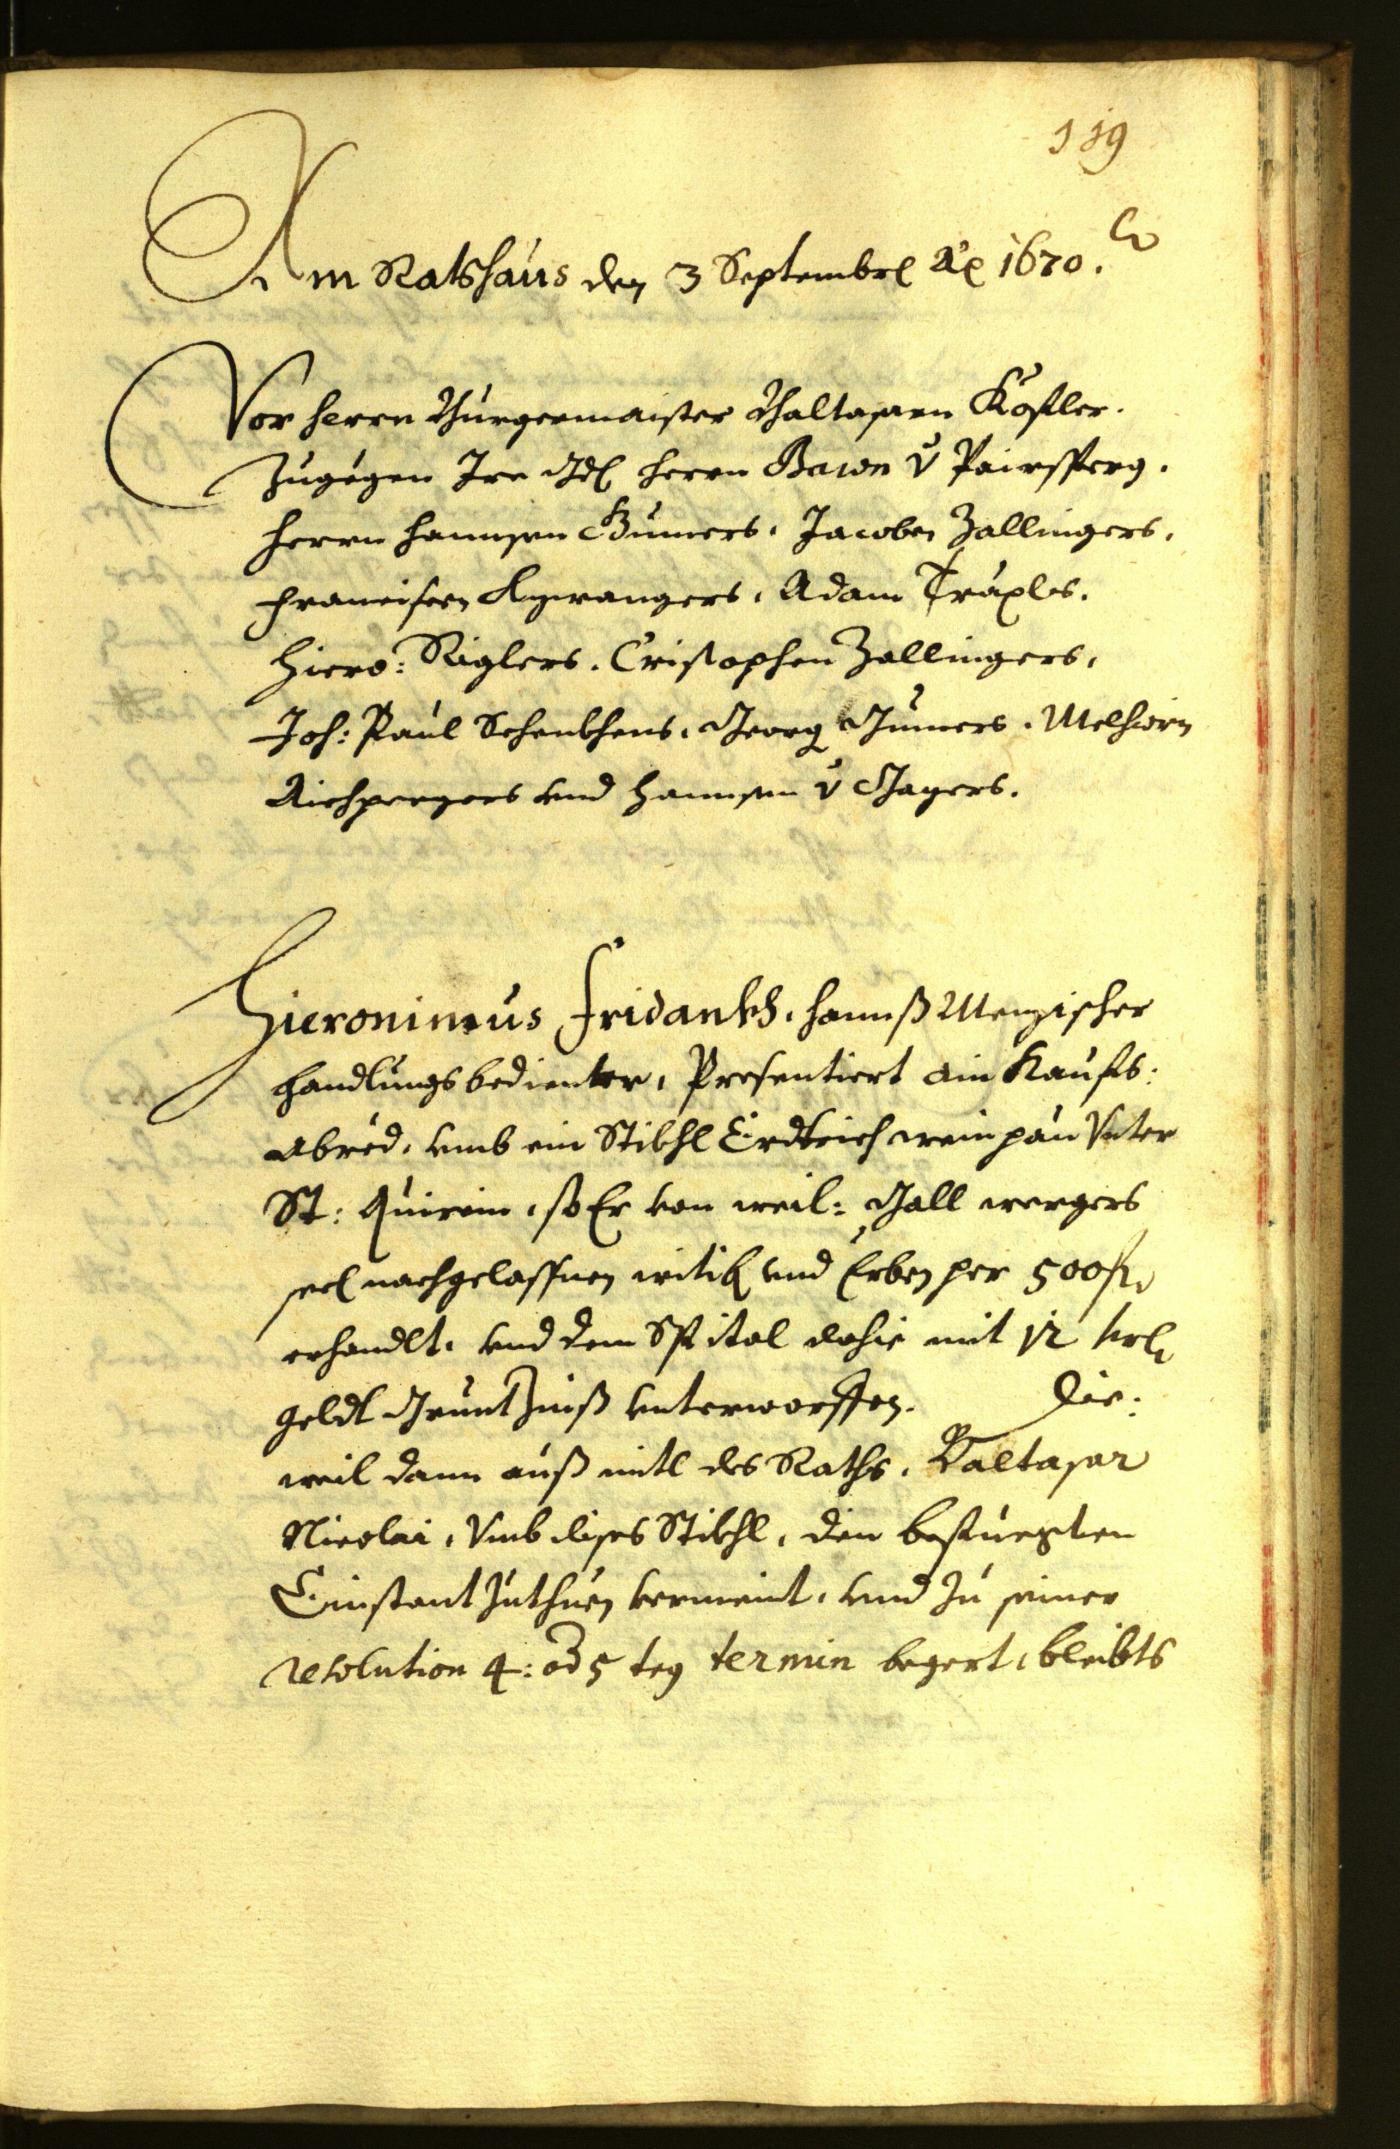 119
Am Ratshaus den 3 Septembr Ao 1670.
Vor herrn Burgermaister Balthasarn Köstler.
Zugegen Irn Gd. herrn Baron v Pairsperg.
Herrn Hannsen Gumers. Jacoben Zallingers.
Francisen Aywangers. Adam Träxls.
Hiero: Riglers. Cristophen Zallingers.
Joh: Paul Schenkhens. Georg Gumers. Melchiorn
Aichpergers vnd Hannsen v Jagers.
Hieronimus Fridankh. Hannß Menzischer
handlungsbedienter, Presentiert ain Kaufs:
abred. vmb ein Stikhl Erdtrich weinpau Vnter
St: Quirein. so Er von weil: Gall wergers
sel nachgelassnen witib vnd Erben per 500 fl
erhandlt. vnd dem Spital alhie mit 12 krl
geldt Grunt Zinß vnterworffen. Die:
weil dann auß mitl des Raths. Baltasar
Nicolai. Vmb dises Stikhl. den befuegten
Einstant zuthuen vermeint. vnd zu seiner
resolution 4: od 5 teg termin begert, bleibts